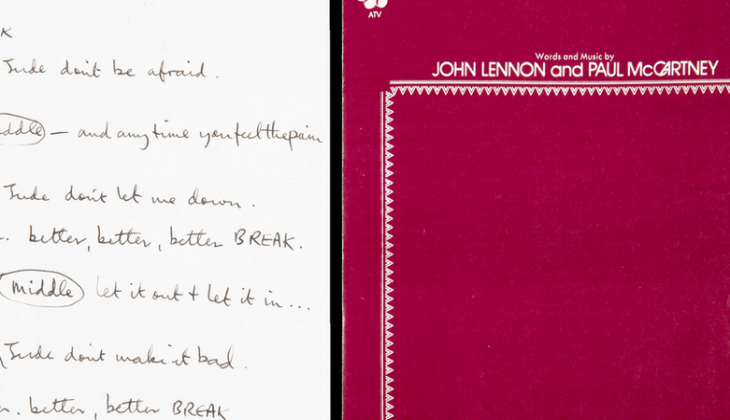 K
Jude don't be afraid.
iddle — and anytime you feel the pain
Jude don't let me down.
. better, better, better BREAK.
middle let it out + let it in...
Jude don't make it bad.
. better, better BREAK
ATV
Words and Music by
JOHN LENNON and PAUL McCARTNEY